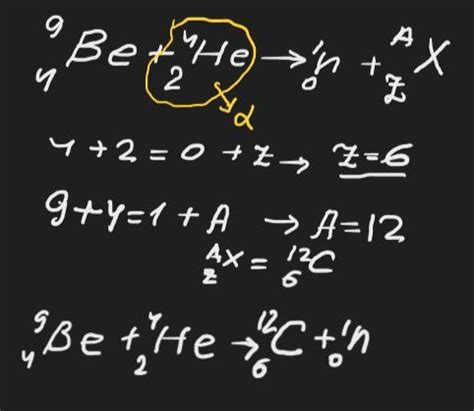 ⁹₄Be + ⁴₂He → ¹₀n + ᴬ_Z X
α
4 + 2 = 0 + Z → Z = 6
9 + 4 = 1 + A → A = 12
ᴬ_Z X = ¹²₆C
⁹₄Be + ⁴₂He → ¹²₆C + ¹₀n